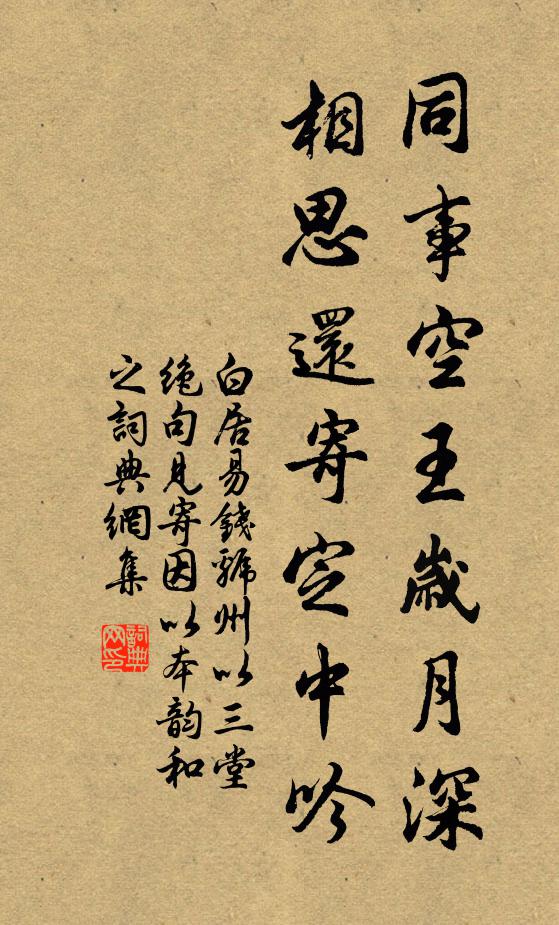 同事空王歲月深
相思還寄定中吟
白居易錢虢州以三堂
絶句見寄因以本韵和
之詞典網集
詞典
网印